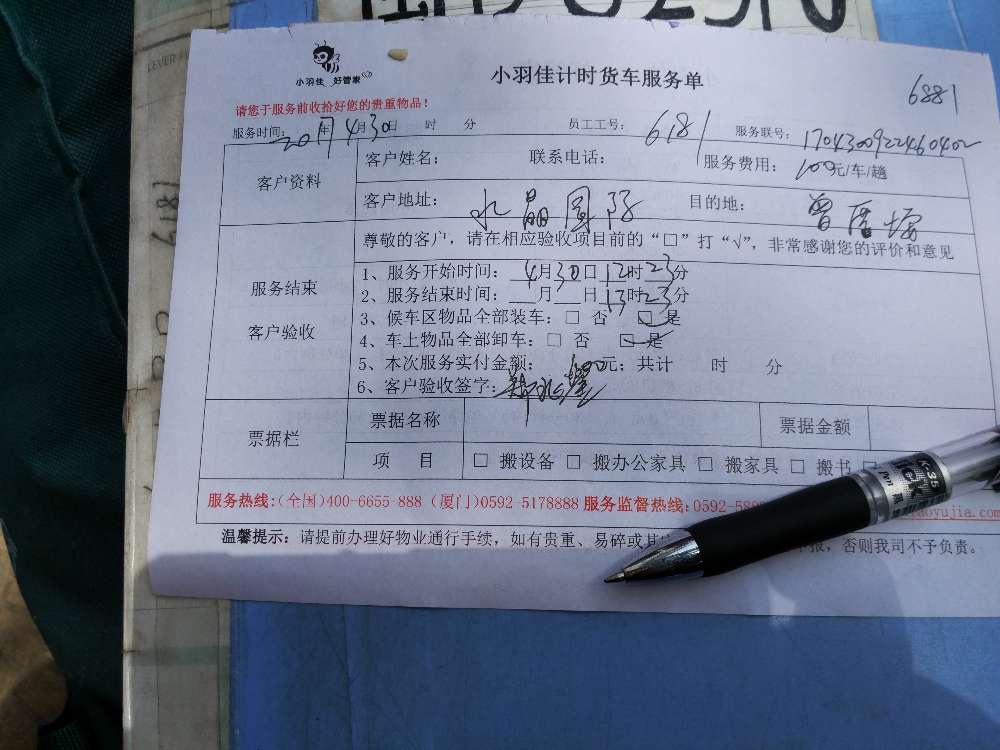 小羽佳 好管家
小羽佳计时货车服务单
6881
请您于服务前收拾好您的贵重物品！
服务时间：2017年4月30日 时 分 员工工号：6181 服务联号：1704300922460402
客户资料
客户姓名： 联系电话： 服务费用：100元/车/趟
客户地址：水晶国际 目的地：曾厝垵
尊敬的客户，请在相应验收项目前的“□”打“√”，非常感谢您的评价和意见
服务结束
客户验收
1、服务开始时间：4月30日12时23分
2、服务结束时间：___月___日13时23分
3、候车区物品全部装车：□ 否 □ 是
4、车上物品全部卸车：□ 否 □ 是
5、本次服务实付金额： 元；共计 时 分
6、客户验收签字：
票据栏
票据名称 票据金额
项 目 □ 搬设备 □ 搬办公家具 □ 搬家具 □ 搬书
服务热线：(全国)400-6655-888 (厦门)0592-5178888 服务监督热线：0592-58
aoyujia.com
温馨提示：请提前办理好物业通行手续，如有贵重、易碎或其
报，否则我司不予负责。
K-35
6181